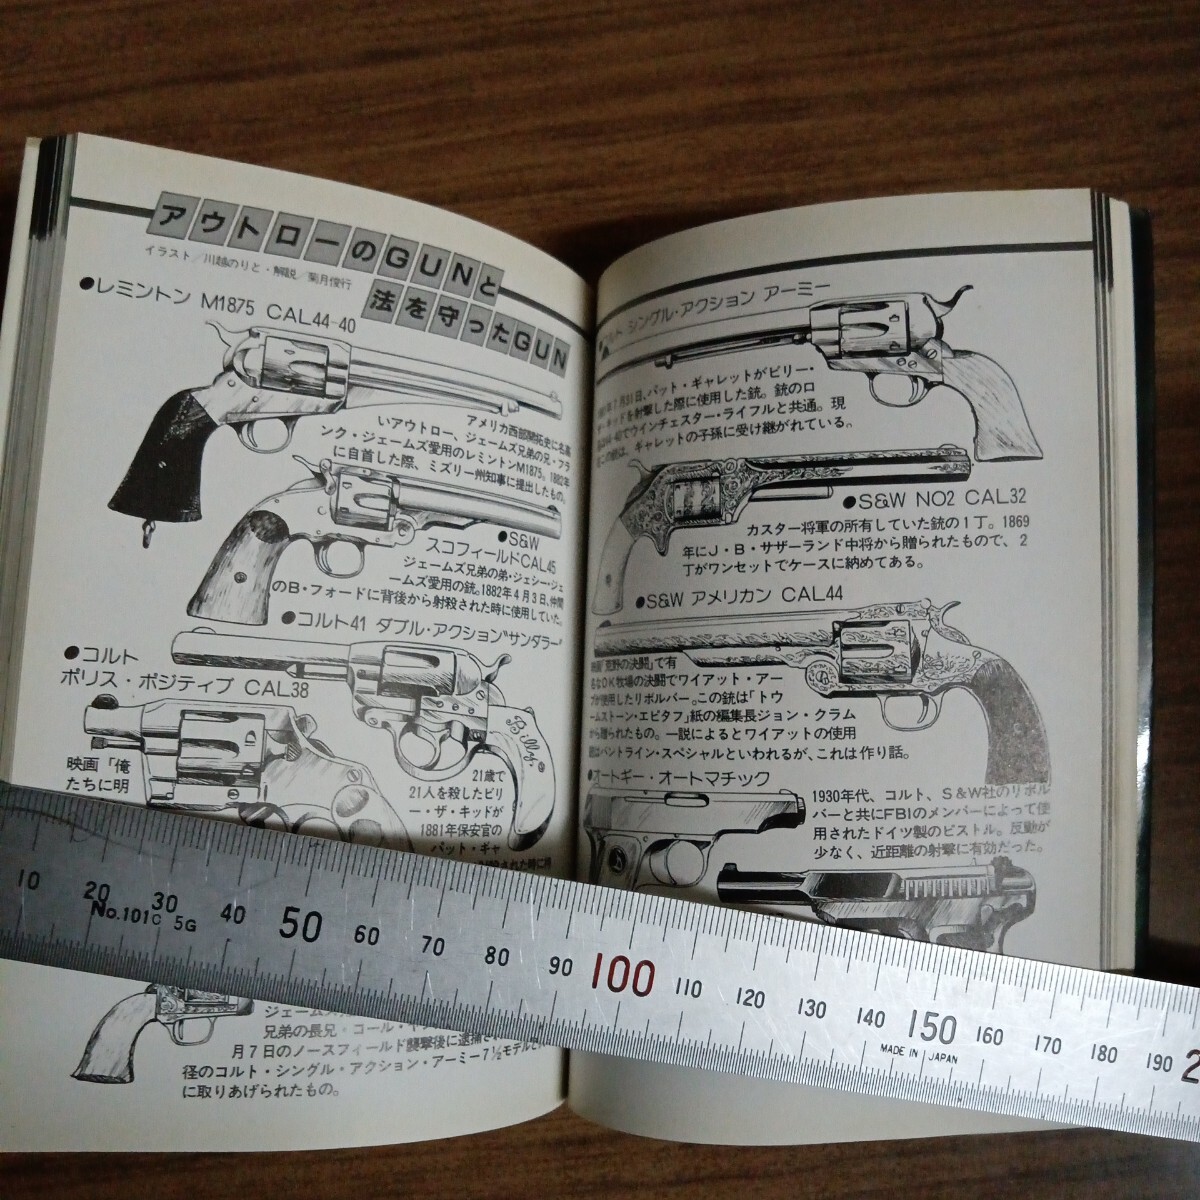 アウトローのGUNと
法を守ったGUN
イラスト／川越のりと・解説／菊月俊行
●レミントン M1875 CAL44-40
アメリカ西部開拓史に名高
いアウトロー、ジェームズ兄弟の兄・フラ
ンク・ジェームズ愛用のレミントンM1875。1882年
に自首した際、ミズリー州知事に提出したもの。
●S&W
スコフィールドCAL45
ジェームズ兄弟の弟・ジェシー・ジェ
ームズ愛用の銃。1882年4月3日、仲間
のB・フォードに背後から射殺された時に使用していた。
●コルト41 ダブル・アクション"サンダラー"
Billy
●コルト
ポリス・ポジティブ CAL38
映画「俺
たちに明
21歳で
21人を殺したビリ
ー・ザ・キッドが
1881年保安官の
パット・ギャ
された時に
ジェームズ
兄弟の長兄・コール・
月7日のノースフィールド襲撃後に逮捕さ
径のコルト・シングル・アクション・アーミー7½モデル
に取りあげられたもの。
ルト シングル・アクション アーミー
年7月31日、パット・ギャレットがビリー・
キッドを射撃した際に使用した銃。銃の口
44-40でウインチェスター・ライフルと共通。現
この銃は、ギャレットの子孫に受け継がれている。
●S&W NO2 CAL32
カスター将軍の所有していた銃の1丁。1869
年にJ・B・サザーランド中将から贈られたもので、2
丁がワンセットでケースに納めてある。
●S&W アメリカン CAL44
映画「荒野の決闘」で有
名なOK牧場の決闘でワイアット・アー
プが使用したリボルバー。この銃は「トウ
ームストーン・エピタフ」紙の編集長ジョン・クラム
から贈られたもの。一説によるとワイアットの使用
銃はバントライン・スペシャルといわれるが、これは作り話。
●オートギー・オートマチック
1930年代、コルト、S&W社のリボル
バーと共にFBIのメンバーによって使
用されたドイツ製のピストル。反動が
少なく、近距離の射撃に有効だった。
10 20 30 40 50 60 70 80 90 100 110 120 130 140 150 160 170 180 190 2
No.101C 5G
MADE IN JAPAN